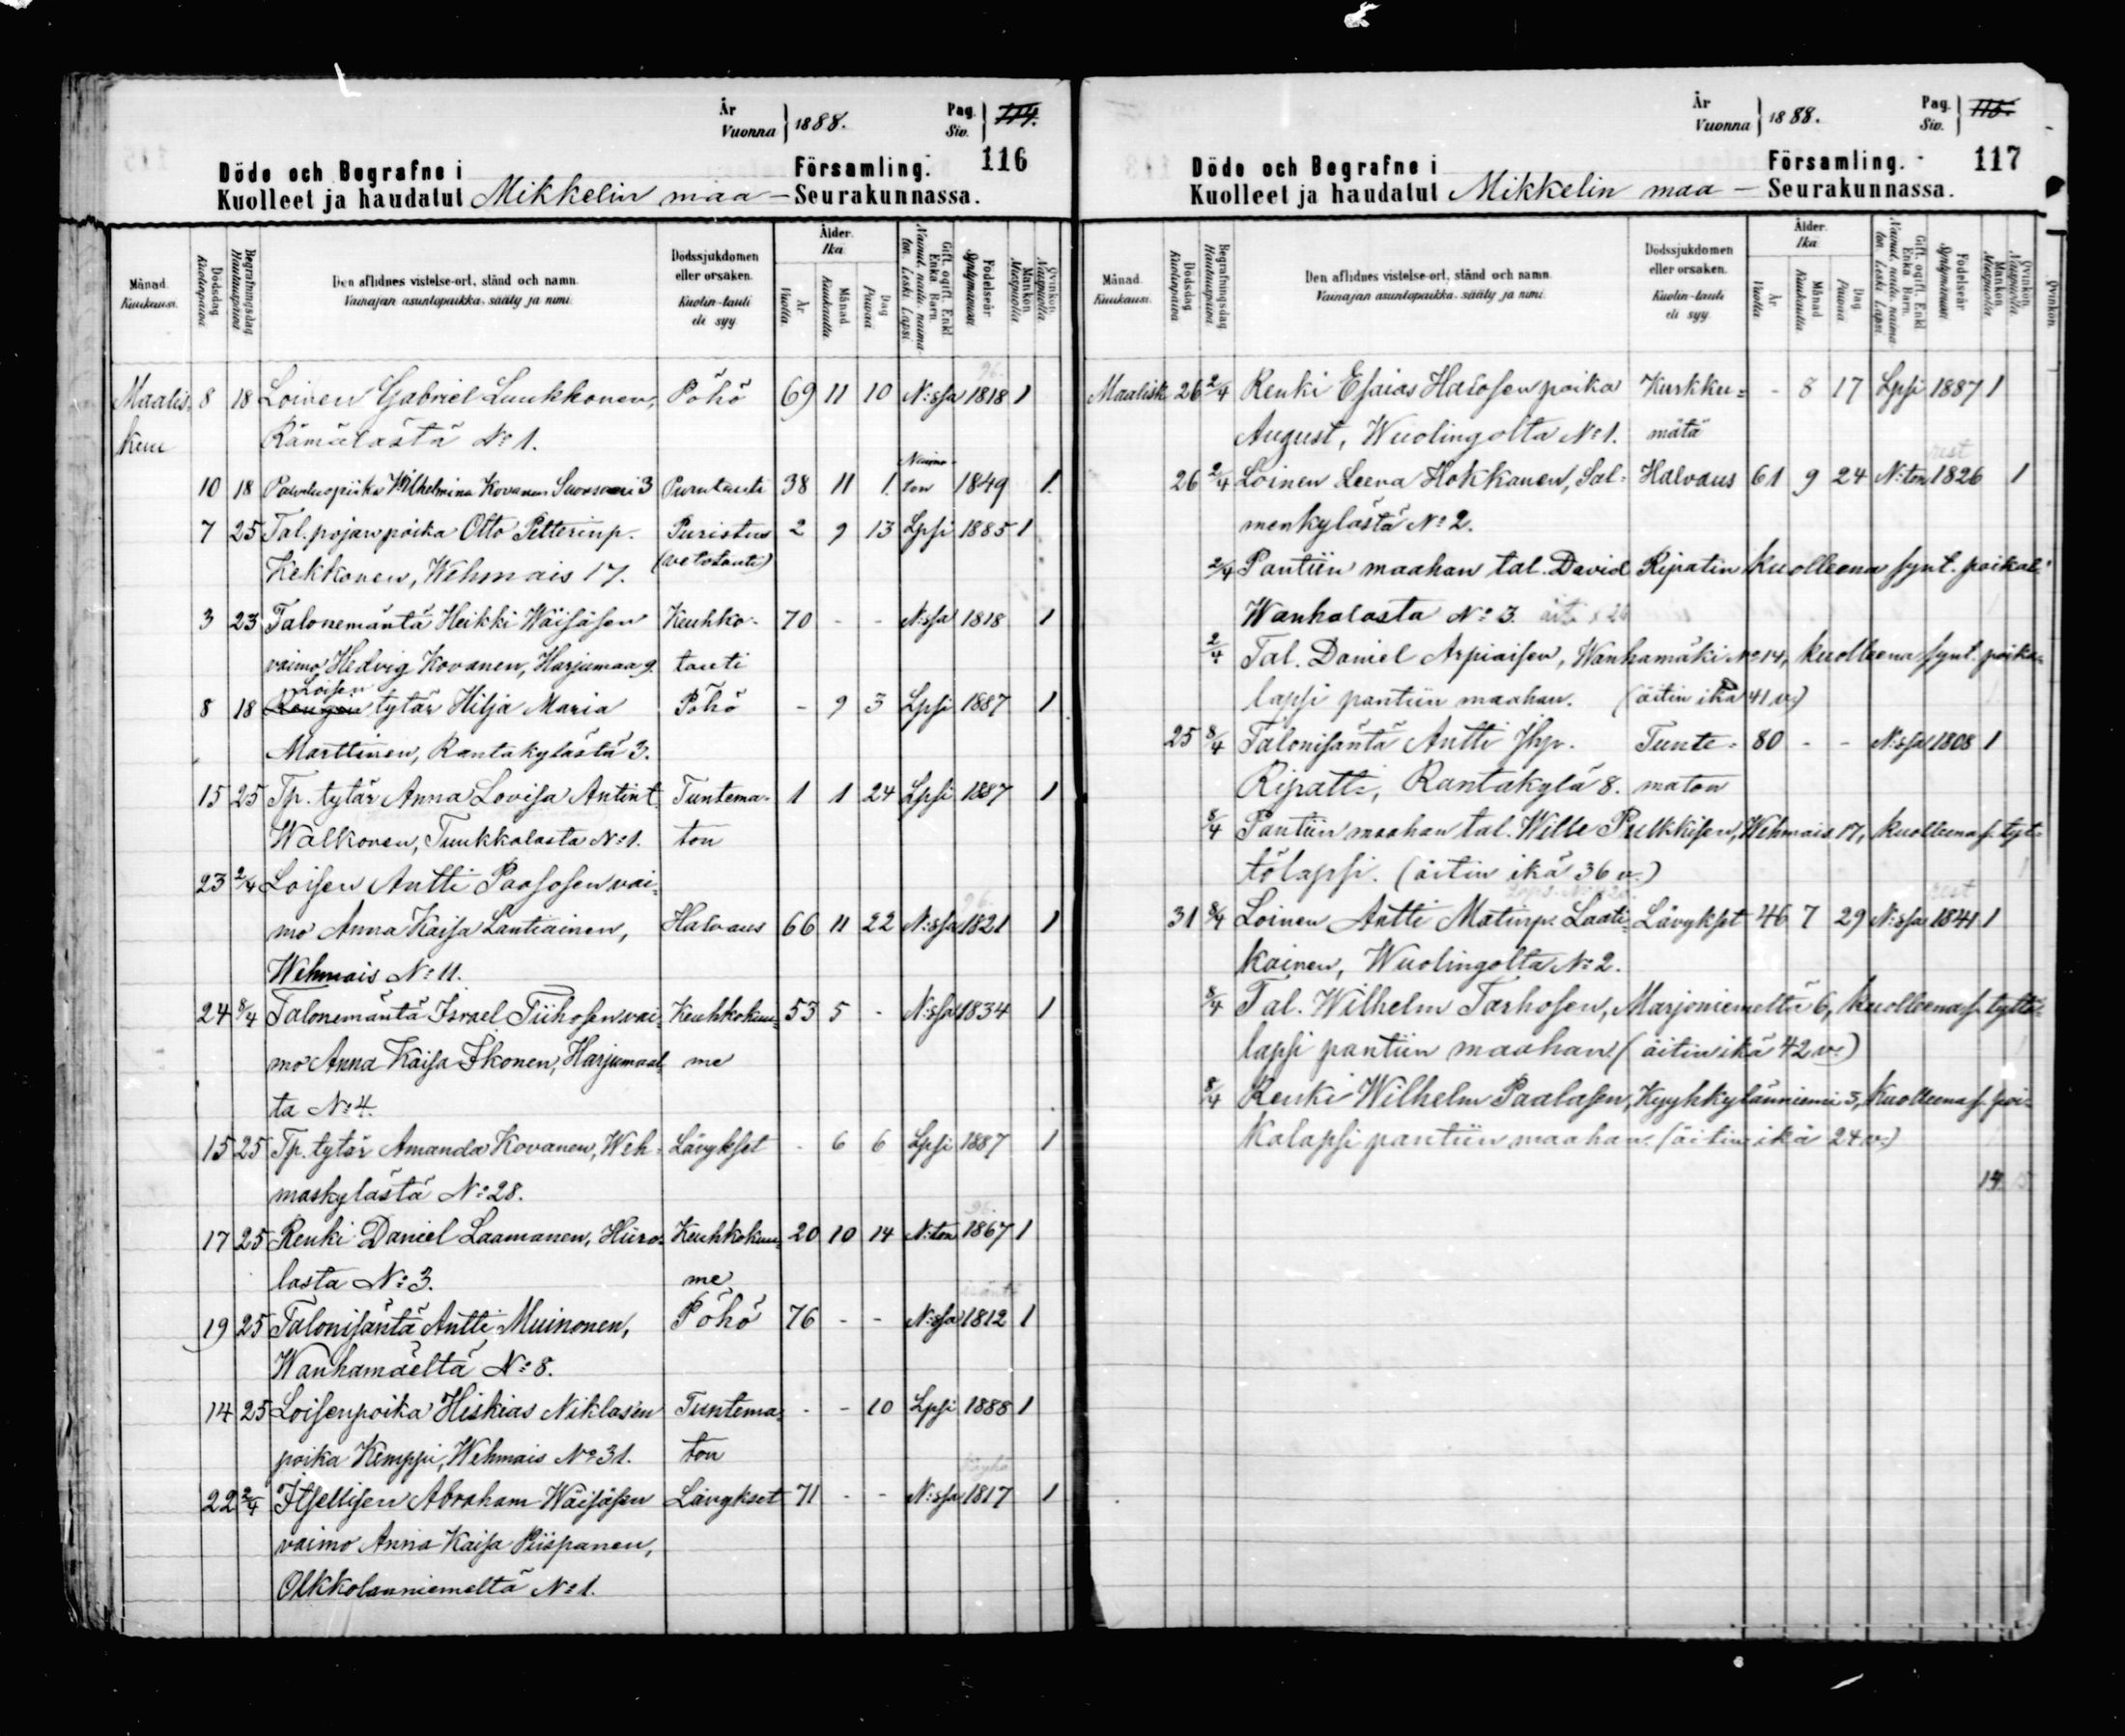 År Vuonna } 1888. Pag. Siv. | 114.
116
Döde och Begrafne i Församling.
Kuolleet ja haudatut Mikkelin maa - Seurakunnassa.
Månad. Kuukausi. Dödsdag Kuolinpäivä Begrafningsdag Hautauspäivä Den aflidnes vistelse-ort, stånd och namn. Vainajan asuntopaikka, sääty ja nimi. Dödssjukdomen eller orsaken. Kuolin-tauti eli syy. Ålder. Ikä. År Vuotta Månad Kuukautta Dag Päivää Gift, ogift, Enkl. Enka. Barn. Nainut, naim. naima-ton. Leski. Lapsi. Födelseår Syntymävuosi Mankön. Miespuolia Qvinkön. Naispuolia
Maalis- 8 18 Loinen Gabriel Luukkonen, Pöhö 69 11 10 N:ssa 1818 1
kuu Rämälästä No 1.
10 18 Palveluspiika Wilhelmina Kovanen Suonsaari 3 Purutauti 38 11 1. Naima-ton 1849 1.
7 25 Tal. pojanpoika Otto Petterinp. Puristus 2 9 13 Lpsi 1885 1
Kekkonen, Wehmais 17. (vetotauti)
3 23 Talonemäntä Heikki Wäisäsen Keuhko- 70 - - N:ssa 1818 1
vaimo Hedvig Kovanen, Harjumaa 9. tauti
8 18 Loisen tytär Hilja Maria Pöhö - 9 3 Lpsi 1887 1
Marttinen, Rantakylästä 3.
15 25 Tp. tytär Anna Lovisa Antint. Tuntema- 1 1 24 Lpsi 1887 1
Walkonen, Tuukkalasta No 1. ton
23 2/4 Loisen Antti Paososen vai-
mo Anna Kaisa Lantiainen, Halvaus 66 11 22 N:ssa 1821 1
Wehmais No 11.
24 8/4 Talonemäntä Israel Tiihosen vai- Keuhkokuu- 53 5 - N:ssa 1834 1
mo Anna Kaisa Ikonen, Harjumaal- me
ta No 4.
15 25 Tp. tytär Amanda Kovanen, Weh- Lävykset - 6 6 Lpsi 1887 1
maskylästä No 28.
17 25 Renki Daniel Laamanen, Hiiro- Keuhkokuu- 20 10 14 N:ton 1867 1
lasta No 3. me
19 25 Talonisäntä Antti Muinonen, Pöhö 76 - - N:ssa 1812 1
Wanhamäeltä No 8.
14 25 Loisenpoika Hiskias Niklasen Tuntema- - - 10 Lpsi 1888 1
poika Kemppi, Wehmais No 31. ton
22 2/4 Itsellisen Abraham Wäisäsen Lävykset 71 - - N:ssa 1817 1
vaimo Anna Kaisa Piispanen,
Olkkolanniemeltä No 1.
År Vuonna } 1888. Pag. Siv. | 115.
117
Döde och Begrafne i Församling.
Kuolleet ja haudatut Mikkelin maa - Seurakunnassa.
Månad. Kuukausi. Dödsdag Kuolinpäivä Begrafningsdag Hautauspäivä Den aflidnes vistelse-ort, stånd och namn. Vainajan asuntopaikka, sääty ja nimi. Dödssjukdomen eller orsaken. Kuolin-tauti eli syy. Ålder. Ikä. År Vuotta Månad Kuukautta Dag Päivää Gift, ogift, Enkl. Enka. Barn. Nainut, naim. naima-ton. Leski. Lapsi. Födelseår Syntymävuosi Mankön. Miespuolia Qvinkön. Naispuolia Qvinkön.
Maalisk. 26 2/4 Renki Esaias Halosen poika Kurkku- - 8 17 Lpsi 1887 1
August, Wuolingolta No 1. mätä
26 2/4 Loinen Leena Hokkanen, Sal- Halvaus 61 9 24 N:ton 1826 1
menkylästä No 2.
2/4 Pantiin maahan tal. David Ripatin kuolleena synt. poikal.
Wanhalasta No 3.
2/4 Tal. Daniel Arpiaisen, Wanhamäki No 14, kuolleena synt. poika-
lapsi pantiin maahan. (äitin ikä 41 v.)
25 8/4 Talonisäntä Antti Jhp. Tunte- 80 - - N:ssa 1808 1
Ripatti, Rantakylä 8. maton
8/4 Pantiin maahan tal. Wille Pulkkisen, Wehmais 17, kuolleena s. tyt-
tölapsi. (äitin ikä 36 v.)
31 8/4 Loinen Antti Matinp. Laati- Lävykset 46 7 29 N:ssa 1841 1
kainen, Wuolingolta No 2.
8/4 Tal. Wilhelm Tarhosen, Marjoniemeltä 6, kuolleena s. tyttö-
lapsi pantiin maahan. (äitin ikä 42 v.)
8/4 Renki Wilhelm Paalasen, Kyyhkylänniemi 3, kuolleena s. poi-
kalapsi pantiin maahan. (äitin ikä 24 v.)